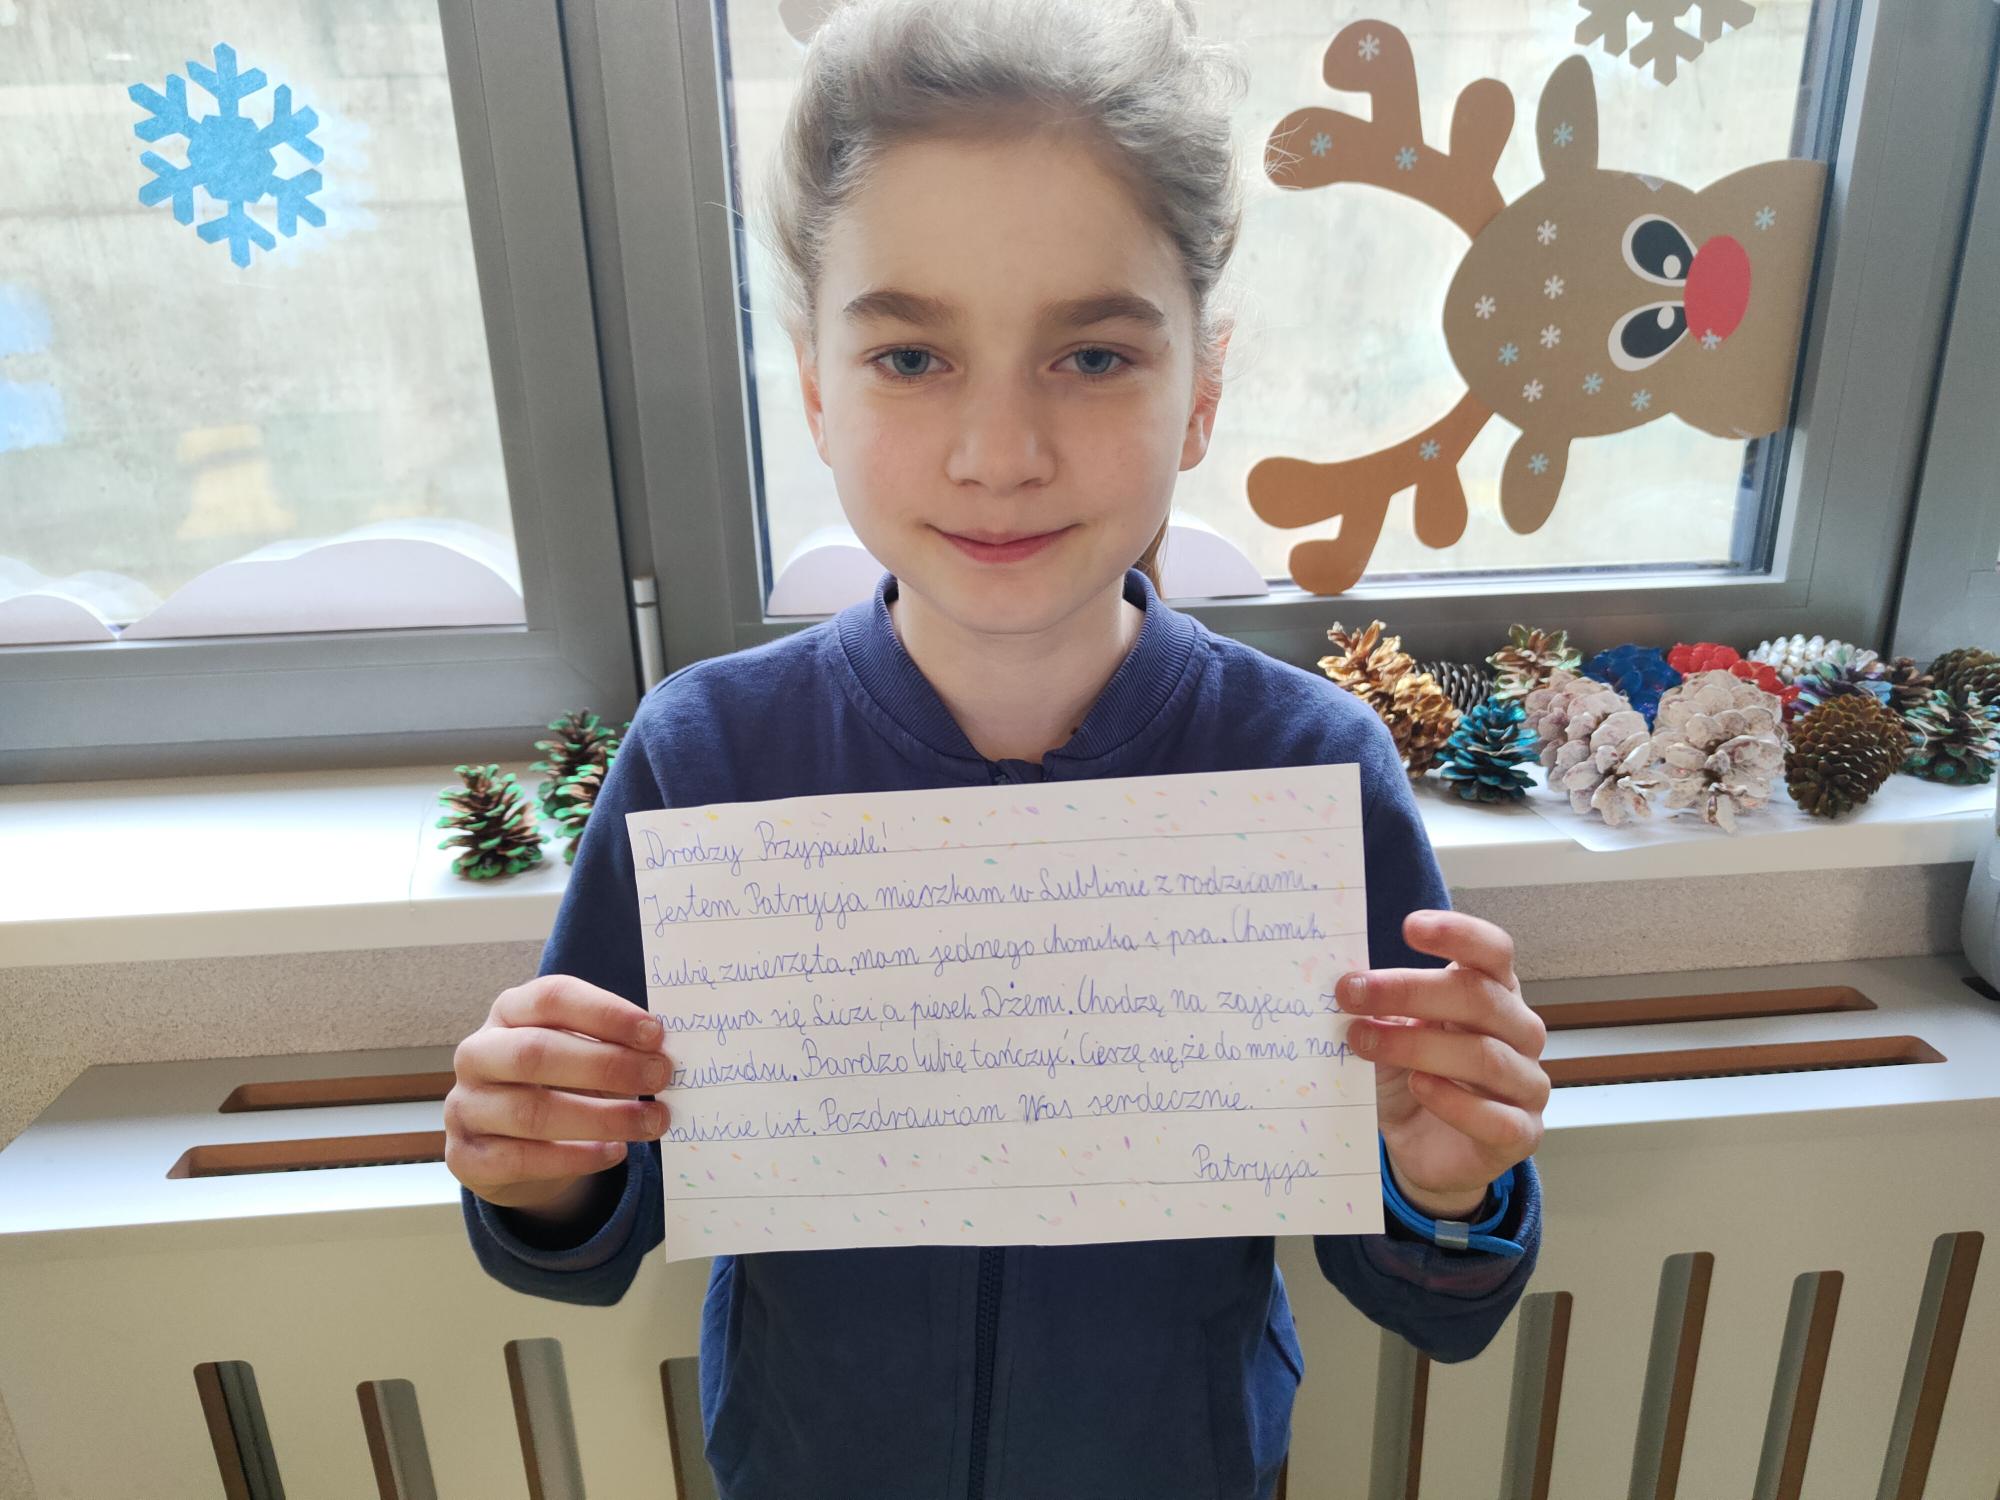 Drodzy Przyjaciele!
Jestem Patrycja mieszkam w Lublinie z rodzicami.
Lubię zwierzęta, mam jednego chomika i psa. Chomik
nazywa się Liczi, a piesek Dżemi. Chodzę na zajęcia z
Bardzo lubię tańczyć. Cieszę się, że do mnie nap
saliście list. Pozdrawiam Was serdecznie.
Patrycja